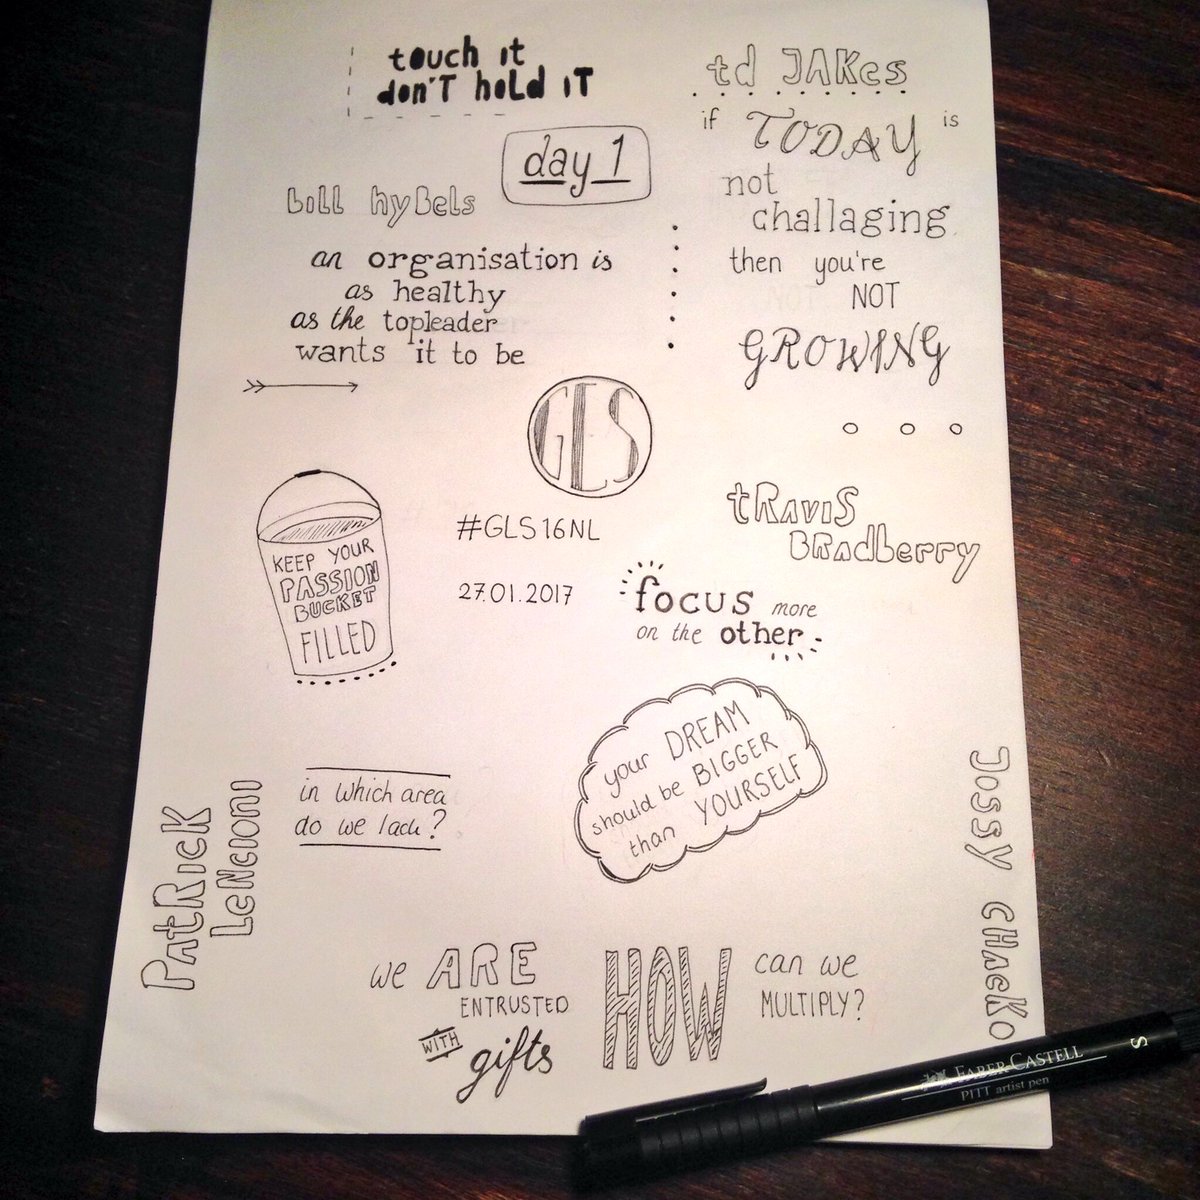 touch it
don't hold it
day 1
bill hybels
an organisation is
as healthy
as the topleader
wants it to be
td JAKes
if TODAY is
not
challaging
then you're
NOT
GROWING
GLS
#GLS16NL
27.01.2017
KEEP YOUR
PASSION
BUCKET
FILLED
tRAViS
BRAdberry
focus more
on the other
your DREAM
should be BIGGER
than YOURSELF
PatRicK
LeNcioni
in which area
do we lack?
Jossy CHacKo
we ARE
ENTRUSTED
WITH
gifts
HOW can we
MULTIPLY?
FABER-CASTELL
PITT artist pen
S